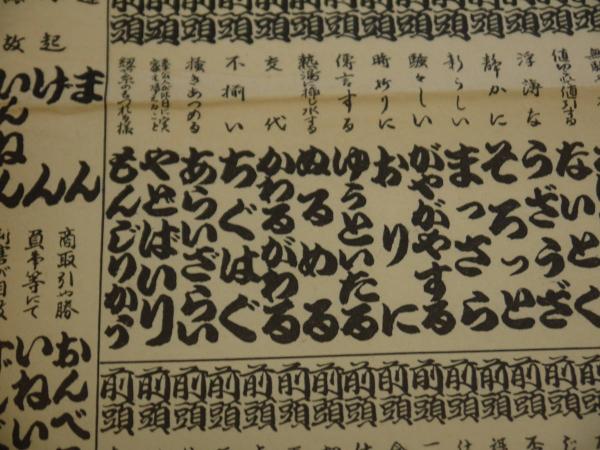 前頭 前頭 前頭 前頭 前頭 前頭 前頭 前頭 前頭 前頭 前頭 前頭 前頭
値切る値引する
ないとく
浮薄な
うざうざ
静かに
そろっと
新らしい
まっさら
騒々しい
がやがやする
時折りに
おりに
傳言する
ゆうといたる
ぬるめる
交代
かわるがわる
不揃い
ちぐはぐ
掻きあつめる
あらいざらい
やどばいり
もんじりかう
前頭 前頭 前頭 前頭 前頭 前頭 前頭 前頭 前頭 前頭 前頭 前頭 前頭
まん
けん
いんねん
商取引や勝
負事等にて
おんべ
いねい